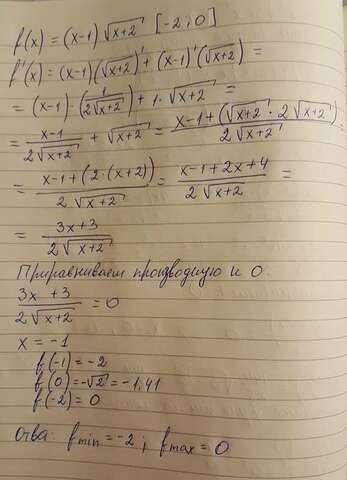 f(x) = (x-1) √x+2 [-2;0]
f'(x) = (x-1)(√x+2)' + (x-1)'(√x+2) =
= (x-1)·(1/2√x+2) + 1·√x+2 =
= x-1/2√x+2 + √x+2 = x-1+(√x+2 · 2√x+2)/2√x+2 =
= x-1+(2·(x+2))/2√x+2 = x-1+2x+4/2√x+2 =
= 3x+3/2√x+2
Приравниваем производную к 0.
3x+3/2√x+2 = 0
x = -1
f(-1) = -2
f(0) = -√2 = -1,41
f(-2) = 0
Ответ: fmin = -2; fmax = 0